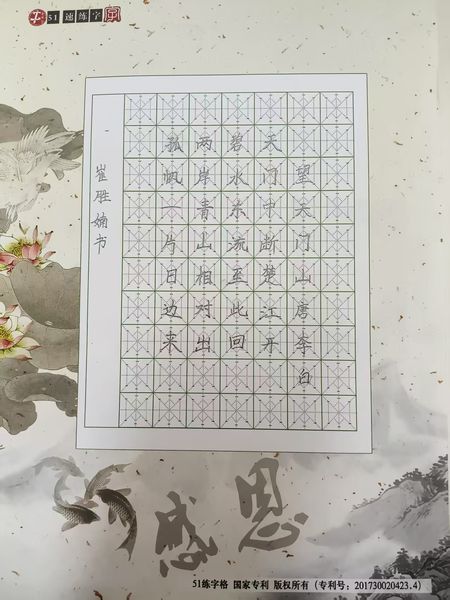 51速练字
望天门山唐李白
天门中断楚江开
碧水东流至此回
两岸青山相对出
孤帆一片日边来
崔胜书
感恩
51练字格 国家专利 版权所有（专利号：201730020423.4）